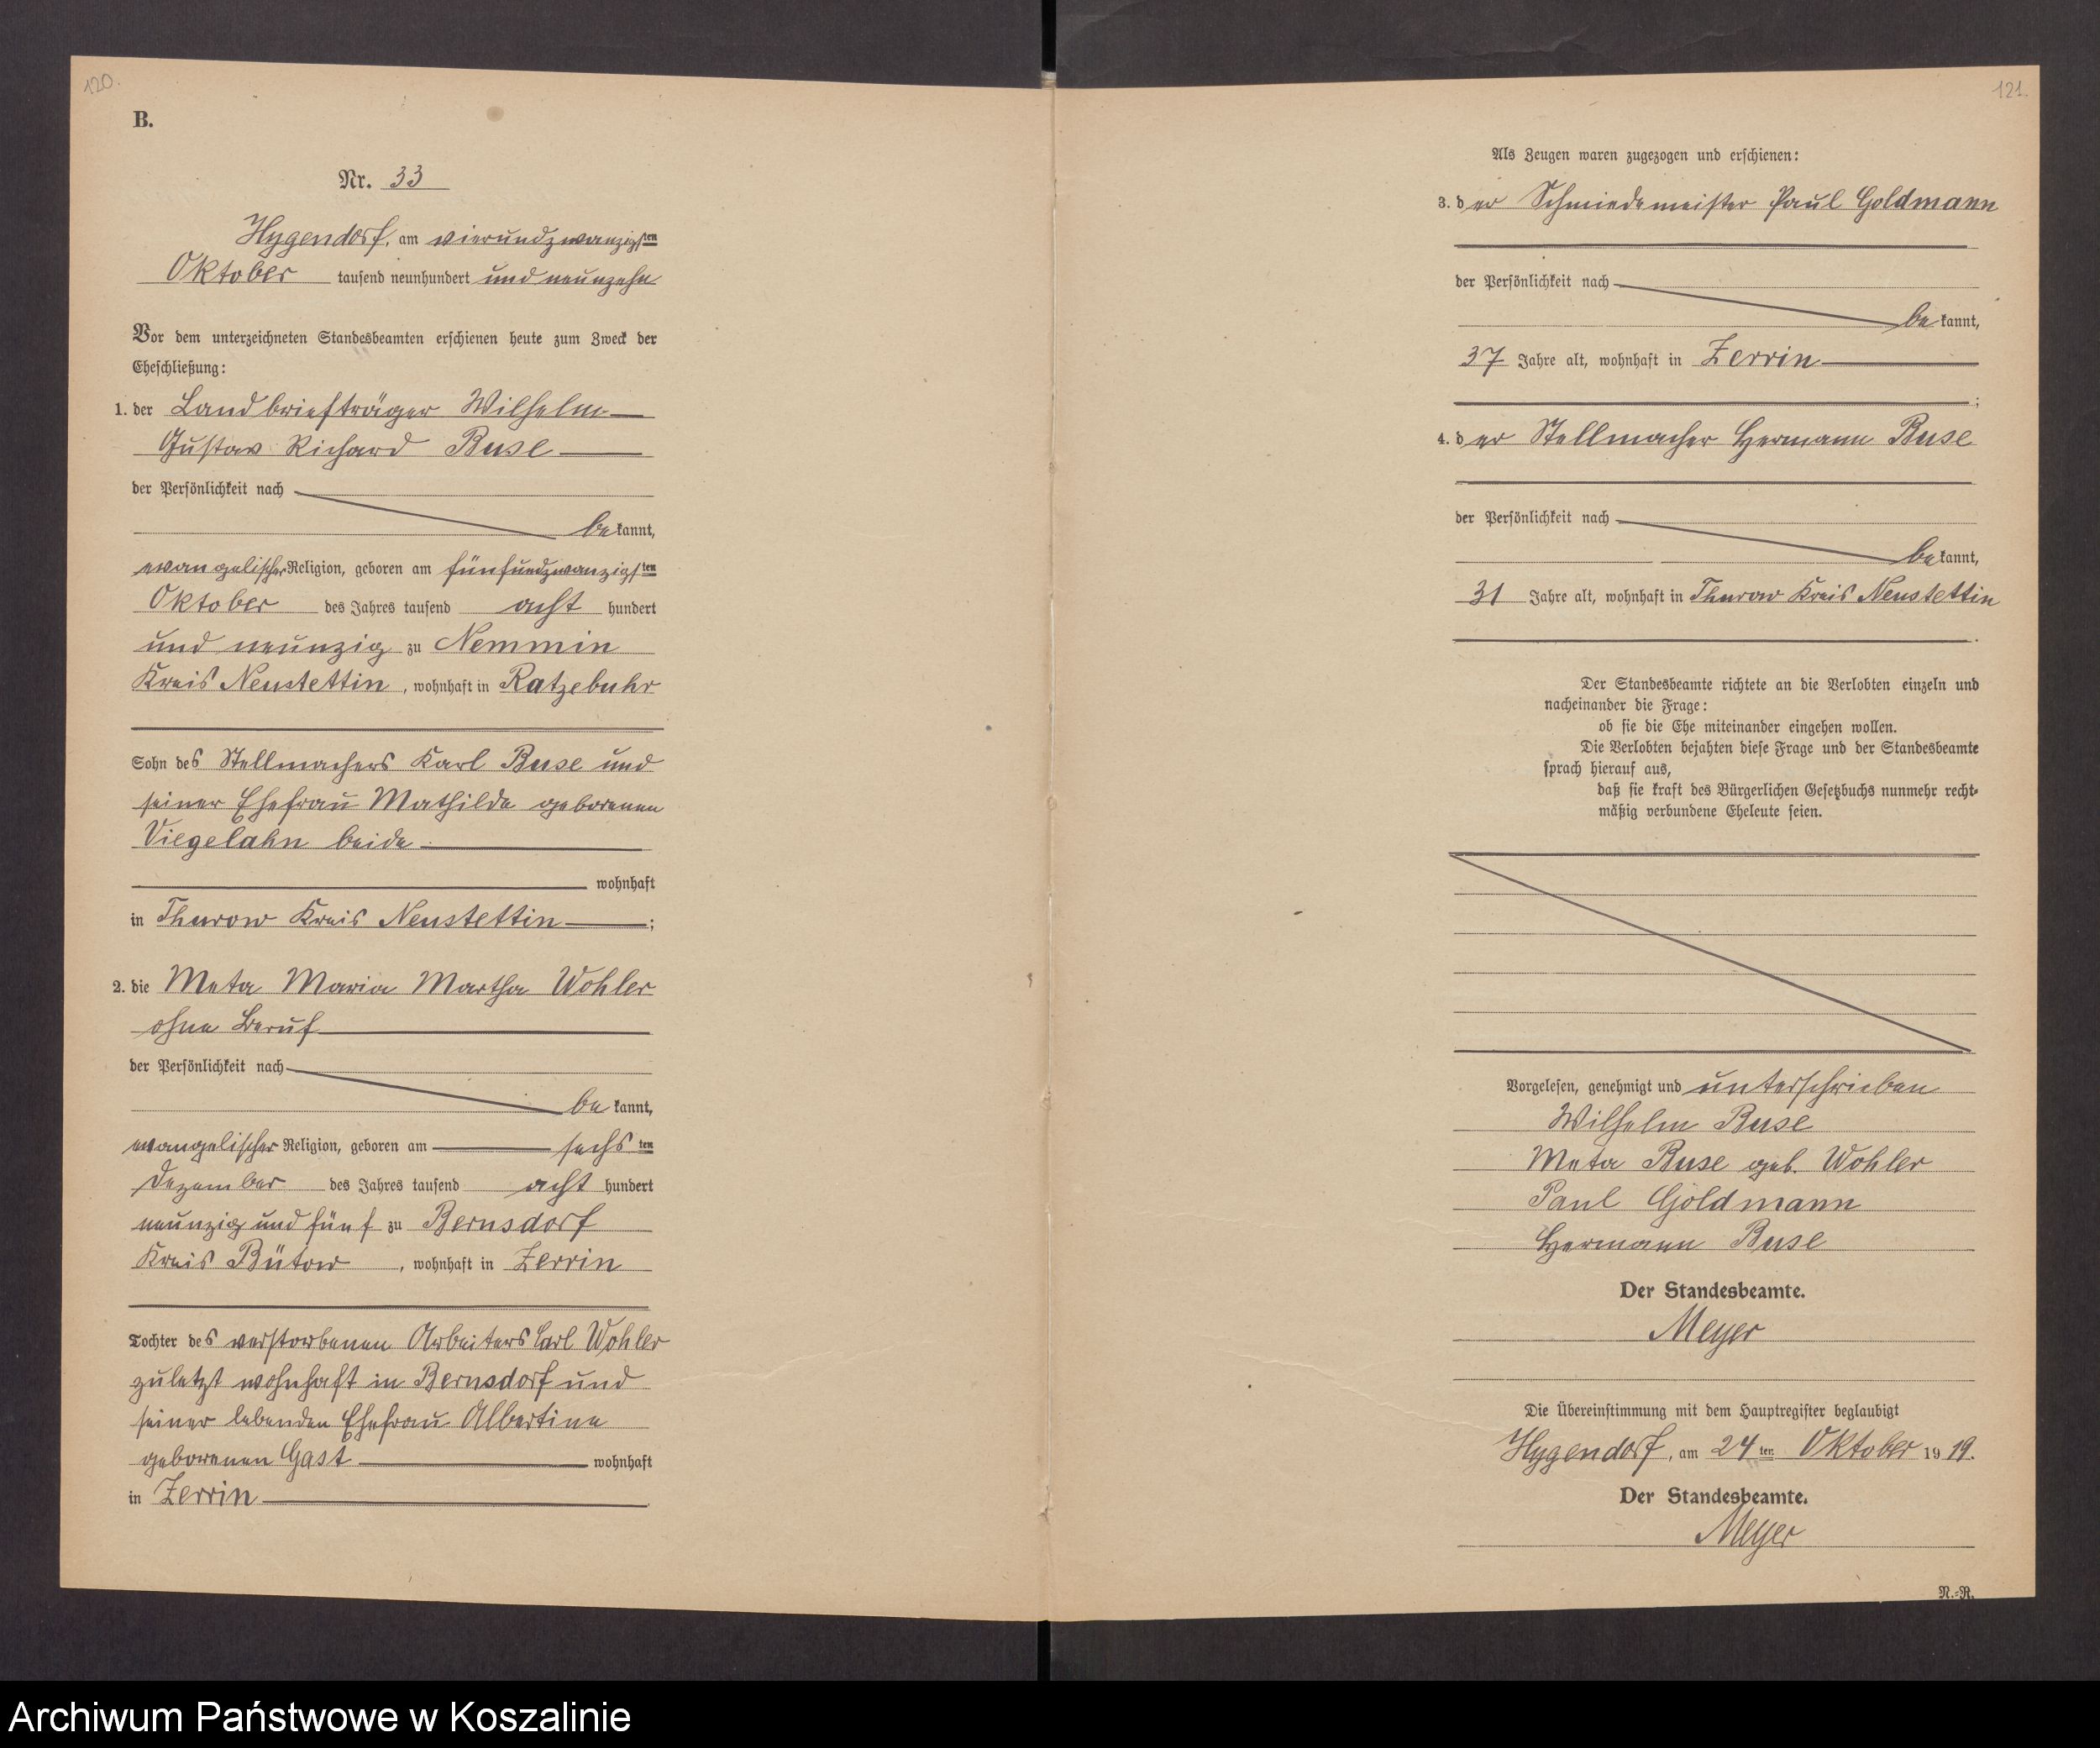 120.
B.
Nr. 33
Hygendorf, am vierundzwanzigsten
Oktober tausend neunhundert und neunzehn
Vor dem unterzeichneten Standesbeamten erschienen heute zum Zweck der
Eheschließung:
1. der Landbriefträger Wilhelm
Gustav Richard Buse
der Persönlichkeit nach
bekannt,
evangelischer Religion, geboren am fünfundzwanzigsten
Oktober des Jahres tausend acht hundert
und neunzig zu Nemmin
Kreis Neustettin, wohnhaft in Ratzebuhr
Sohn des Stellmachers Karl Buse und
seiner Ehefrau Mathilde geborenen
Viegelahn beide
wohnhaft
in Thurow Kreis Neustettin;
2. die Meta Maria Martha Wohler
ohne Beruf
der Persönlichkeit nach
bekannt,
evangelischer Religion, geboren am sechsten
Dezember des Jahres tausend acht hundert
neunzig und fünf zu Bernsdorf
Kreis Bütow, wohnhaft in Zerrin
Tochter des verstorbenen Arbeiters Carl Wohler
zuletzt wohnhaft in Bernsdorf und
seiner lebenden Ehefrau Albertine
geborenen Gast wohnhaft
in Zerrin.
121.
Als Zeugen waren zugezogen und erschienen:
3. der Schmiedemeister Paul Goldmann
der Persönlichkeit nach
bekannt,
37 Jahre alt, wohnhaft in Zerrin
;
4. der Stellmacher Hermann Buse
der Persönlichkeit nach
bekannt,
31 Jahre alt, wohnhaft in Thurow Kreis Neustettin
.
Der Standesbeamte richtete an die Verlobten einzeln und
nacheinander die Frage:
ob sie die Ehe miteinander eingehen wollen.
Die Verlobten bejahten diese Frage und der Standesbeamte
sprach hierauf aus,
daß sie kraft des Bürgerlichen Gesetzbuchs nunmehr recht-
mäßig verbundene Eheleute seien.
Vorgelesen, genehmigt und unterschrieben
Wilhelm Buse
Meta Buse geb. Wohler
Paul Goldmann
Hermann Buse
Der Standesbeamte.
Meyer
Die Übereinstimmung mit dem Hauptregister beglaubigt
Hygendorf, am 24ten Oktober 1919.
Der Standesbeamte.
Meyer
N.-R.
Archiwum Państwowe w Koszalinie